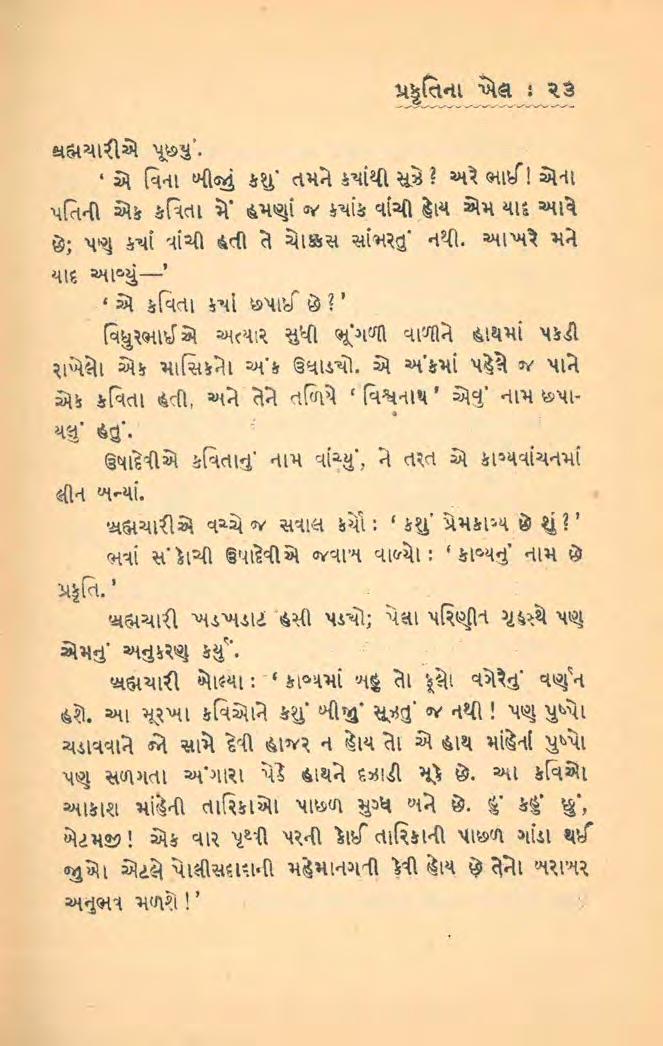 પ્રકૃતિના ખેલ : ૨૩
બ્રહ્મચારીએ પૂછયું.
‘ એ વિના બીજું કશું તમને કયાંથી સૂઝે? અરે ભાઈ! એના
પતિની એક કવિતા મેં હમણાં જ કયાંક વાંચી હોય એમ યાદ આવે
છે; પણ કયાં વાંચી હતી તે ચોક્કસ સાંભરતું નથી. આખરે મને
યાદ આવ્યું—’
‘ એ કવિતા કયાં છપાઈ છે?’
વિધુરભાઈએ અત્યાર સુધી ભૂંગળી વાળીને હાથમાં પકડી
રાખેલો એક માસિકનો અંક ઉઘાડયો. એ અંકમાં પહેલે જ પાને
એક કવિતા હતી, અને તેને તળિયે ‘ વિશ્વનાથ ’ એવું નામ છપા-
યલું હતું.
ઉષાદેવીએ કવિતાનું નામ વાંચ્યું, ને તરત એ કાવ્યવાંચનમાં
લીન બન્યાં.
બ્રહ્મચારીએ વચ્ચે જ સવાલ કર્યો : ‘ કશું પ્રેમકાવ્ય છે શું?’
ભવાં સંકોચી ઉષાદેવીએ જવાબ વાળ્યો : ‘ કાવ્યનું નામ છે
પ્રકૃતિ.’
બ્રહ્મચારી ખડખડાટ હસી પડયો; પેલા પરિણીત ગૃહસ્થે પણ
એમનું અનુકરણ કર્યું.
બ્રહ્મચારી બોલ્યા : ‘ કાવ્યમાં બહુ તો ફૂલો વગેરેનું વર્ણન
હશે. આ મૂરખા કવિઓને કશું બીજું સૂઝતું જ નથી! પણ પુષ્પો
ચડાવવાને જો સામે દેવી હાજર ન હોય તો એ હાથ માંહેનાં પુષ્પો
પણ સળગતા અંગારા પેઠે હાથને દઝાડી મૂકે છે. આ કવિઓ
આકાશ માંહેની તારિકાઓ પાછળ મુગ્ધ બને છે. હું કહું છું,
બેટમજી! એક વાર પૃથ્વી પરની કોઈ તારિકાની પાછળ ગાંડા થઈ
જુઓ એટલે પોલીસદાદાની મહેમાનગતી કેવી હોય છે તેનો બરાબર
અનુભવ મળશે!’